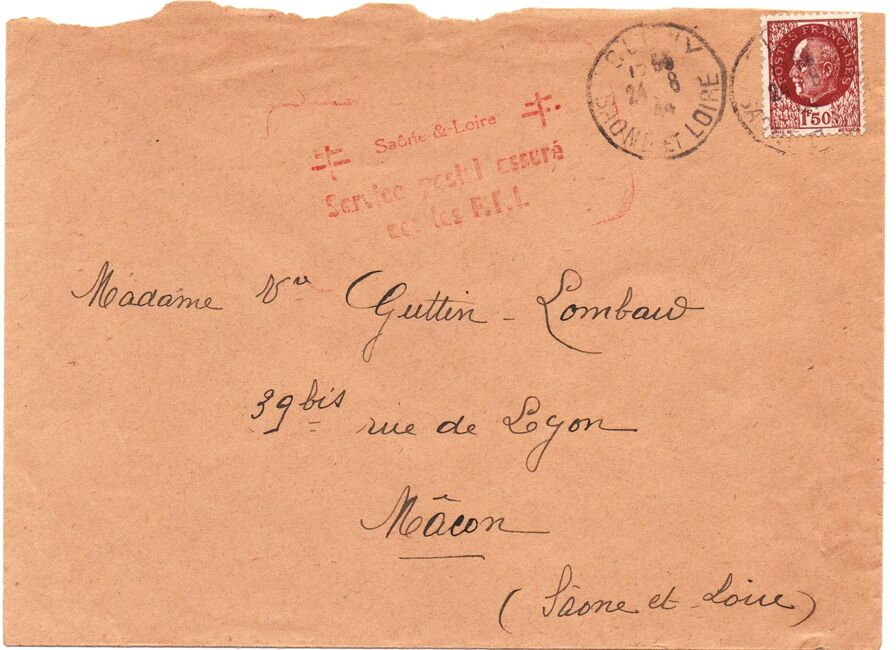 POSTES FRANÇAISES
1F50
CLUNY
24 8
44
SAONE ET LOIRE
Saône-&-Loire
Service postal assuré
par les F.F.I.
Madame Vve Guttin - Lombard
39 bis rue de Lyon
Mâcon
(Sâone et Loire)